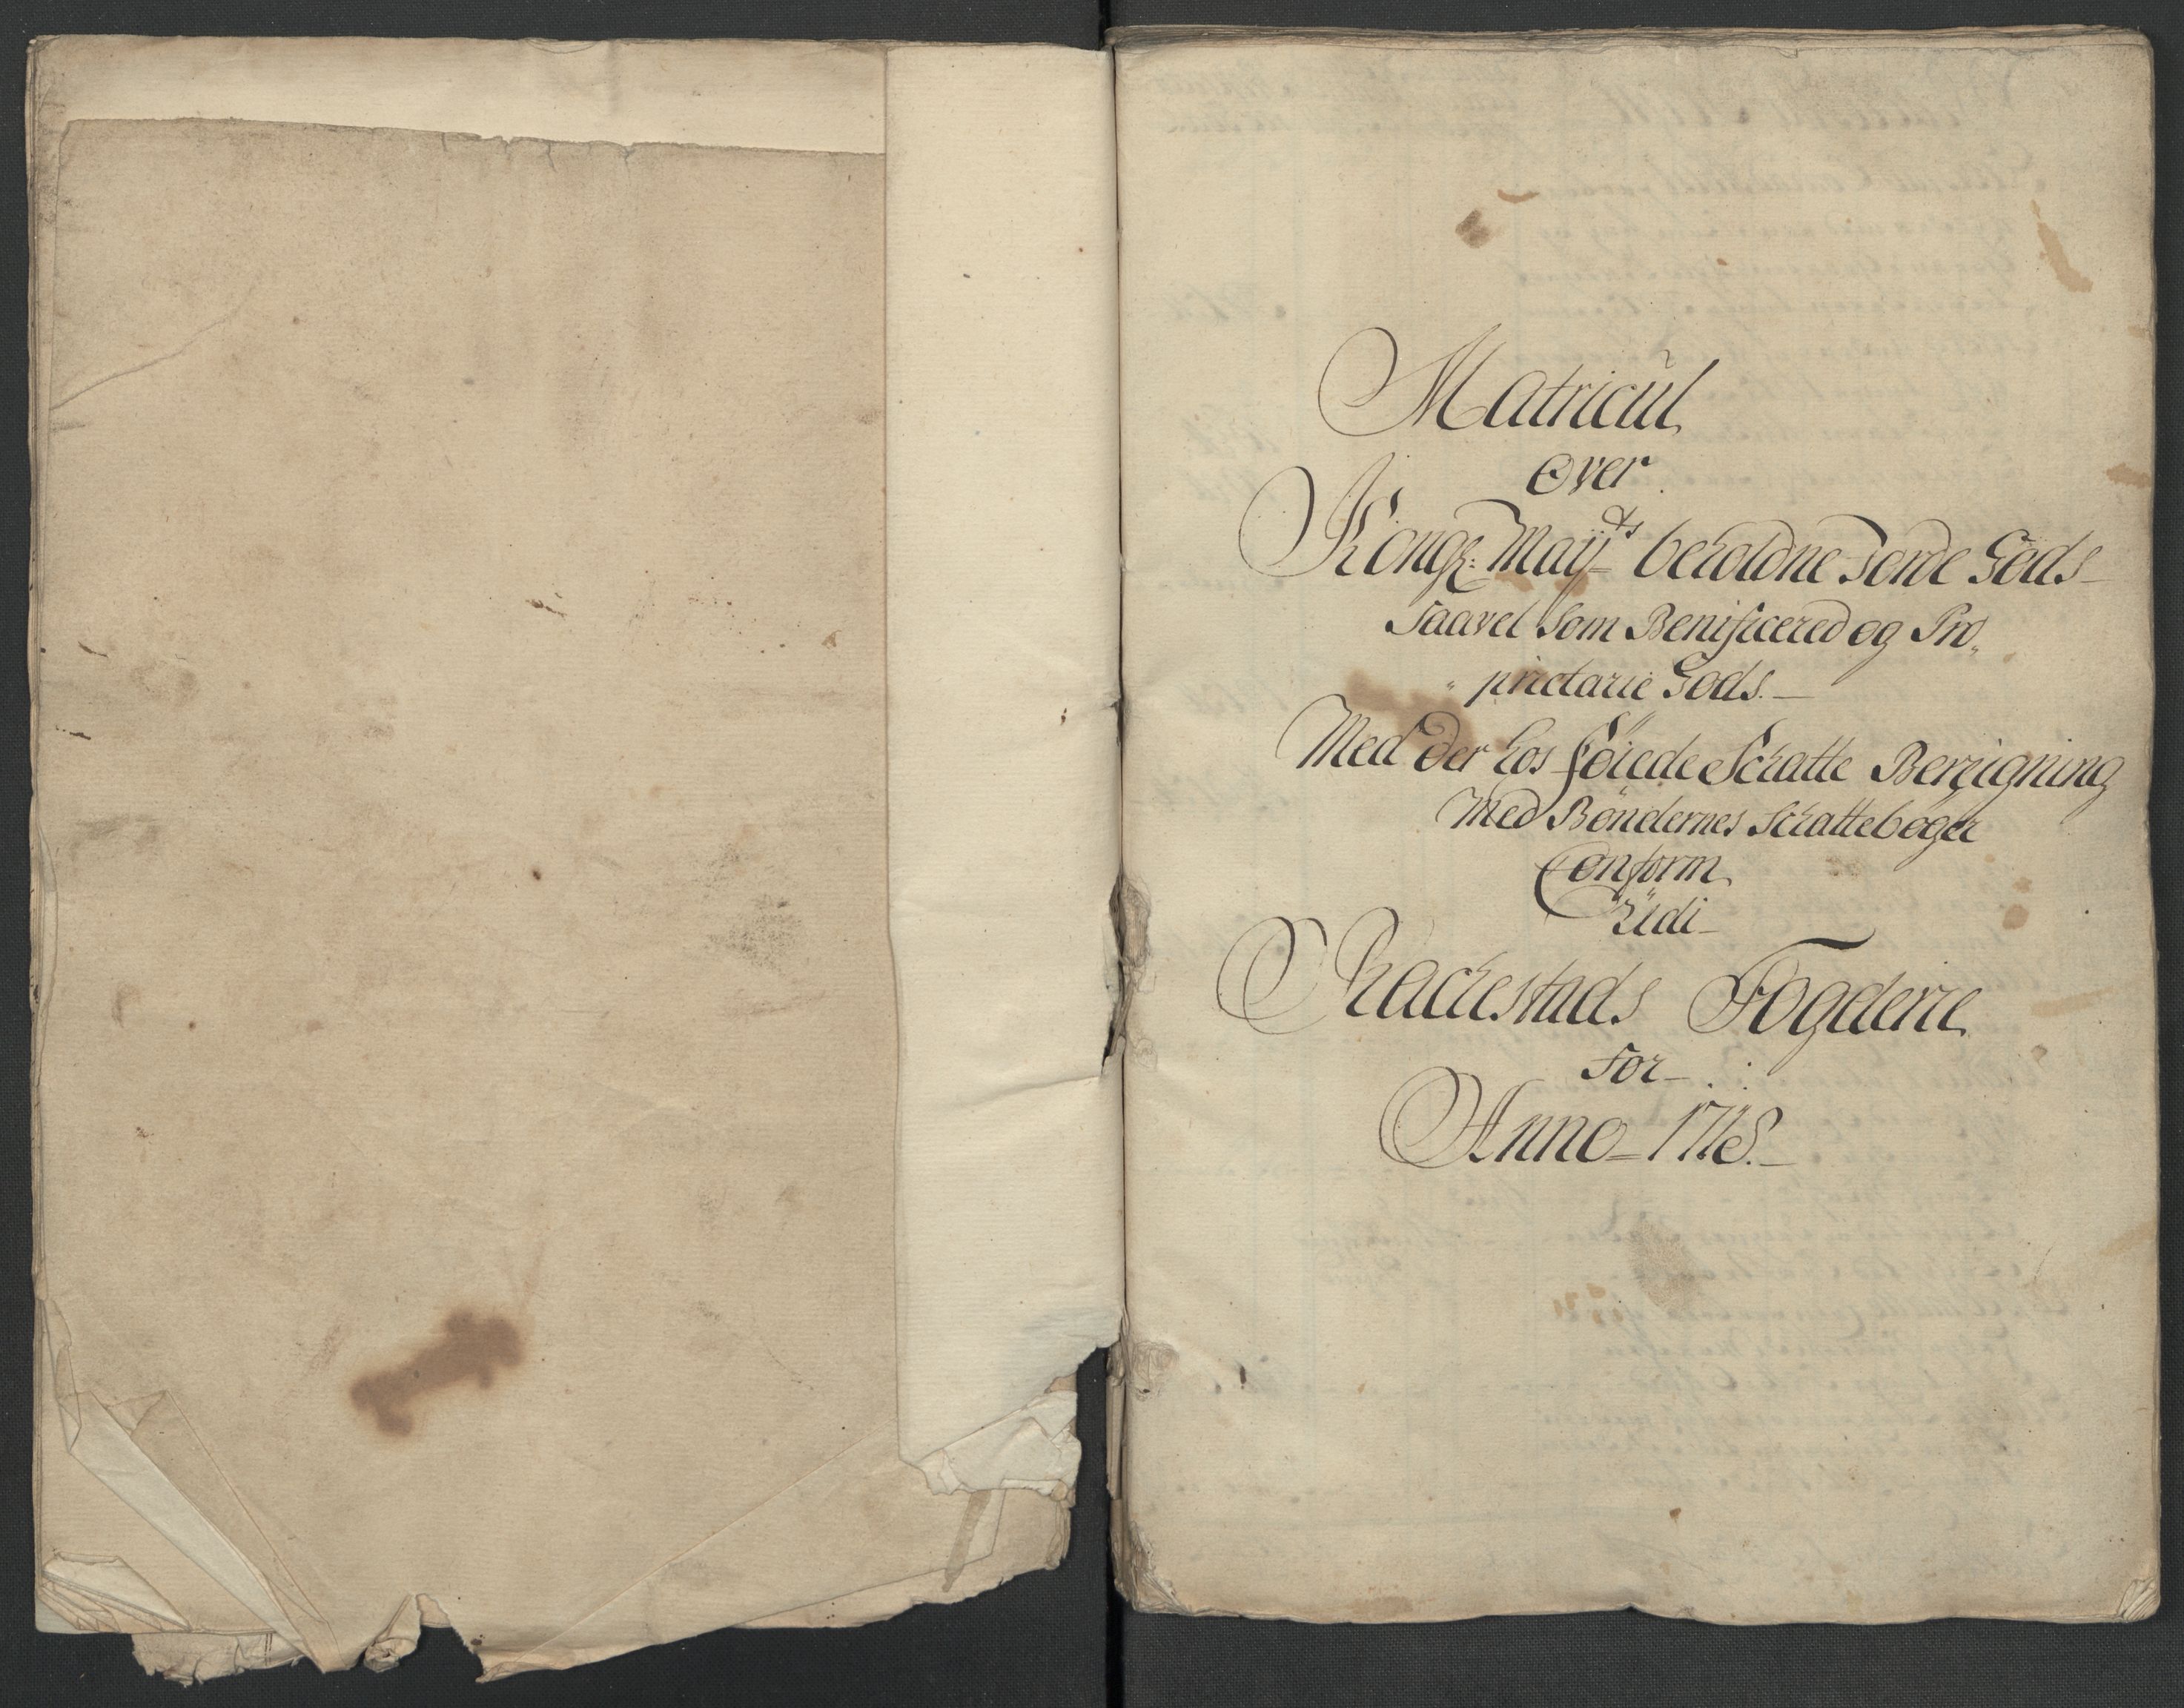 Matricul
Over
Kongl: Maÿts beholdne Jorde Gods
Saavel Som Benificered og Pro„
„prietarie Gods.
Med der hos föiede Schatte Beregning
Med Böndernes Schatteböger
Conform
Udi
Rachestads Fogderie
for
Anno 1718.